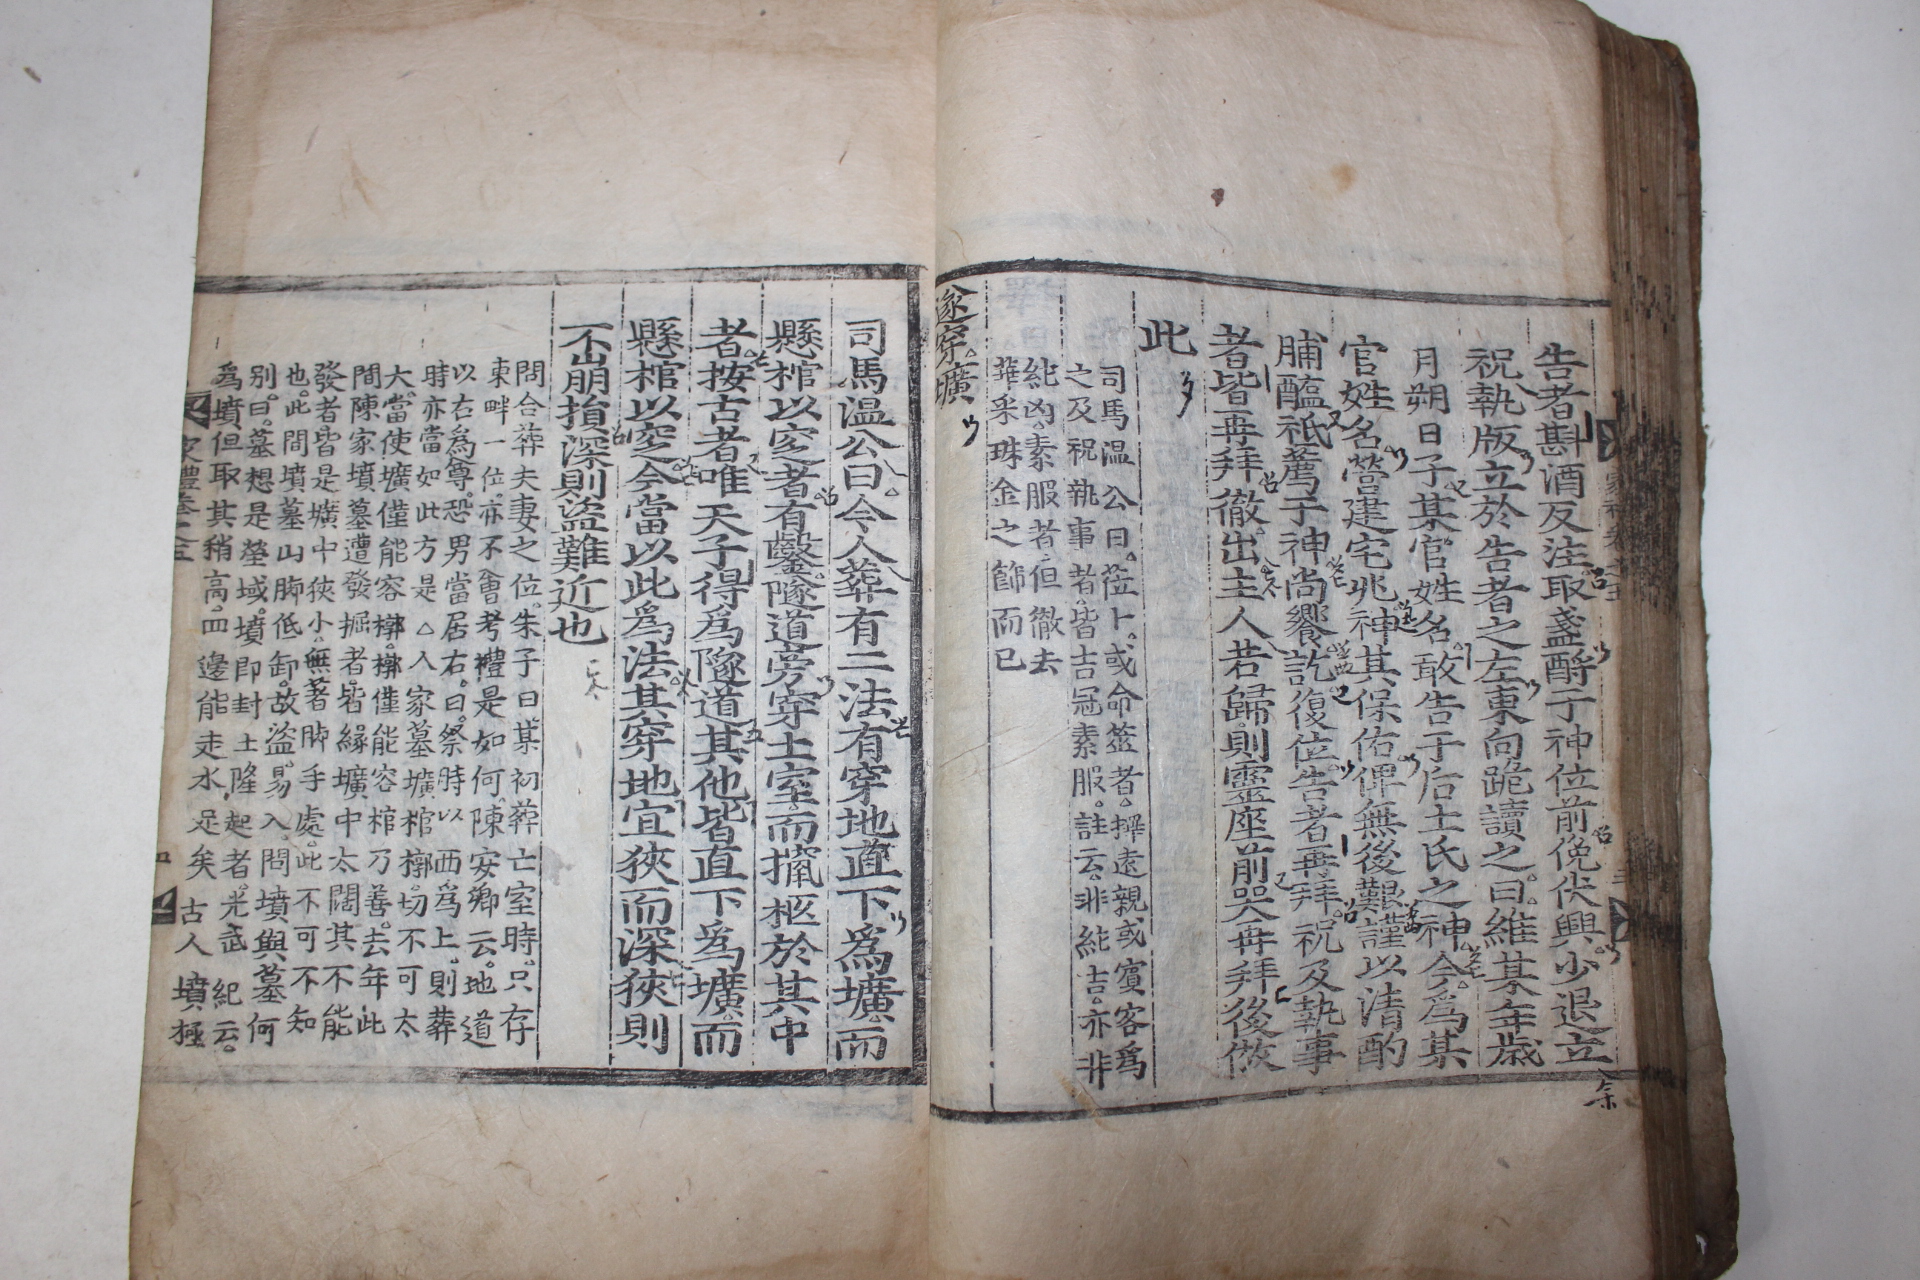 告者斟酒反注取盞酹于神位前俛伏興少退立
祝執版立於告者之左東向跪讀之曰維某年歲
月朔日子某官姓名敢告于后土氏之神今爲某
官姓名營建宅兆神其保佑俾無後艱謹以清酌
脯醢祇薦于神尚饗訖復位告者再拜祝及執事
者皆再拜徹出主人若歸則靈座前哭再拜後倣
此
司馬溫公曰莅卜或命筮者擇遠親或賓客爲
之及祝執事者皆吉冠素服註云非純吉亦非
純凶素服者但徹去
華采珠金之飾而已
遂穿壙
司馬温公曰今人葬有二法有穿地直下爲壙而
懸棺以窆者有鑿隧道旁穿土室而攛柩於其中
者按古者唯天子得爲隧道其他皆直下爲壙而
懸棺以窆今當以此爲法其穿地宜狹而深狹則
不崩損深則盜難近也
問合葬夫妻之位朱子曰某初葬亡室時只存
東畔一位亦不曾考禮是如何陳安卿云地道
以右爲尊恐男當居右曰祭時以西爲上則葬
時亦當如此方是△人家墓壙棺槨切不可太
大當使壙僅能容槨槨僅能容棺乃善去年此
間陳家墳墓遭發掘者皆緣壙中太闊其不能
發者皆是壙中狹小無著脚手處此不可不知
也此間墳墓山脚低卸故盜易入問墳與墓何
別曰墓想是塋域墳即封土隆起者光武紀云
爲墳但取其稍高四邊能走水足矣古人墳極
家禮卷之五